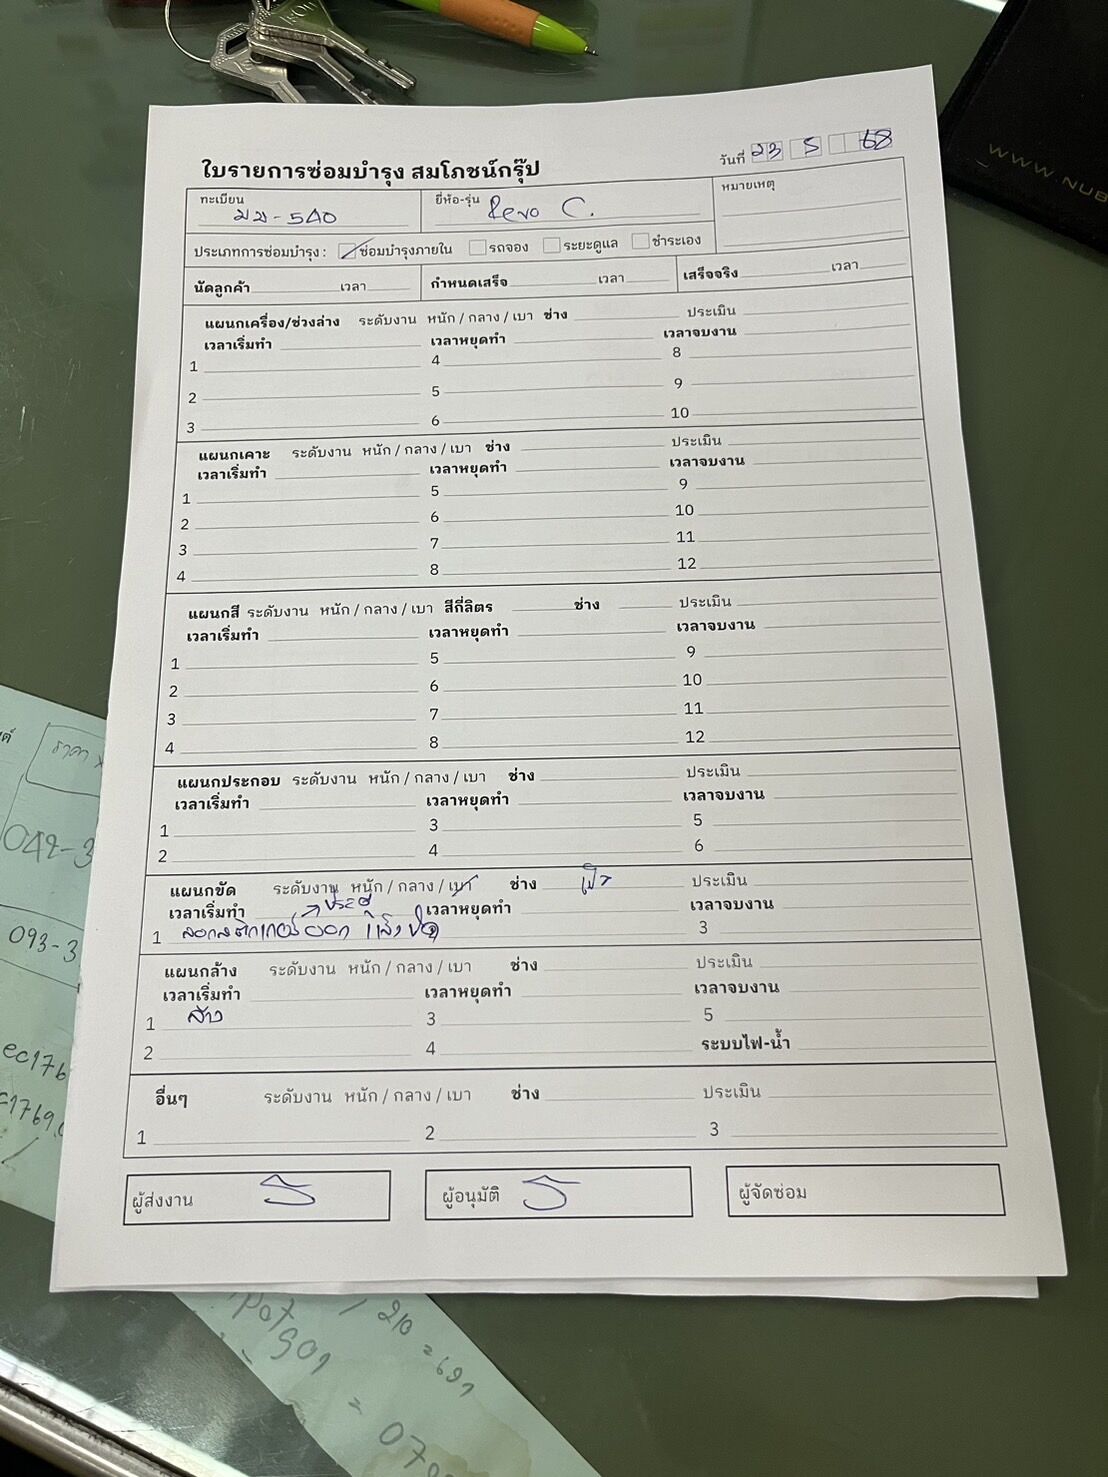 วันที่ 23 5 68
ใบรายการซ่อมบำรุง สมโภชน์กรุ๊ป
ทะเบียน ยี่ห้อ-รุ่น Revo C. หมายเหตุ
ประเภทการซ่อมบำรุง : ซ่อมบำรุงภายใน รถจอง ระยะดูแล ชำระเอง
นัดลูกค้า เวลา กำหนดเสร็จ เวลา เสร็จจริง เวลา
แผนกเครื่อง/ช่วงล่าง ระดับงาน หนัก / กลาง / เบา ช่าง ประเมิน
เวลาเริ่มทำ เวลาหยุดทำ เวลาจบงาน
1 4 8
2 5 9
3 6 10
แผนกเคาะ ระดับงาน หนัก / กลาง / เบา ช่าง ประเมิน
เวลาเริ่มทำ เวลาหยุดทำ เวลาจบงาน
1 5 9
2 6 10
3 7 11
4 8 12
แผนกสี ระดับงาน หนัก / กลาง / เบา สีกี่ลิตร ช่าง ประเมิน
เวลาเริ่มทำ เวลาหยุดทำ เวลาจบงาน
1 5 9
2 6 10
3 7 11
4 8 12
แผนกประกอบ ระดับงาน หนัก / กลาง / เบา ช่าง ประเมิน
เวลาเริ่มทำ เวลาหยุดทำ เวลาจบงาน
1 3 5
2 4 6
แผนกขัด ระดับงาน หนัก / กลาง / เบา ช่าง ประเมิน
เวลาเริ่มทำ ประตู เวลาหยุดทำ เวลาจบงาน
1 ลอกสติกเกอร์ออก 3
แผนกล้าง ระดับงาน หนัก / กลาง / เบา ช่าง ประเมิน
เวลาเริ่มทำ เวลาหยุดทำ เวลาจบงาน
1 ล้าง 3 5
2 4 ระบบไฟ-น้ำ
อื่นๆ ระดับงาน หนัก / กลาง / เบา ช่าง ประเมิน
1 2 3
ผู้ส่งงาน ผู้อนุมัติ ผู้จัดซ่อม
WWW.NUB
ราคา
042-3
093-3